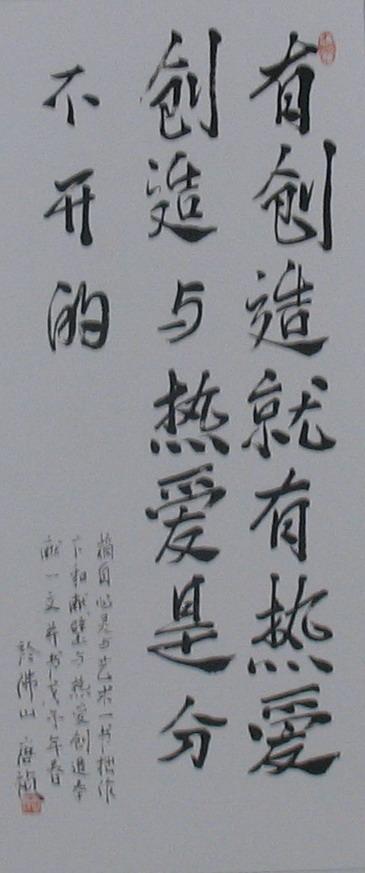 有创造就有热爱
创造与热爱是分
不开的
摘自心灵与艺术一书拙作
卞和献璧与热爱创造奉
献一文并书戊子年春
於佛山